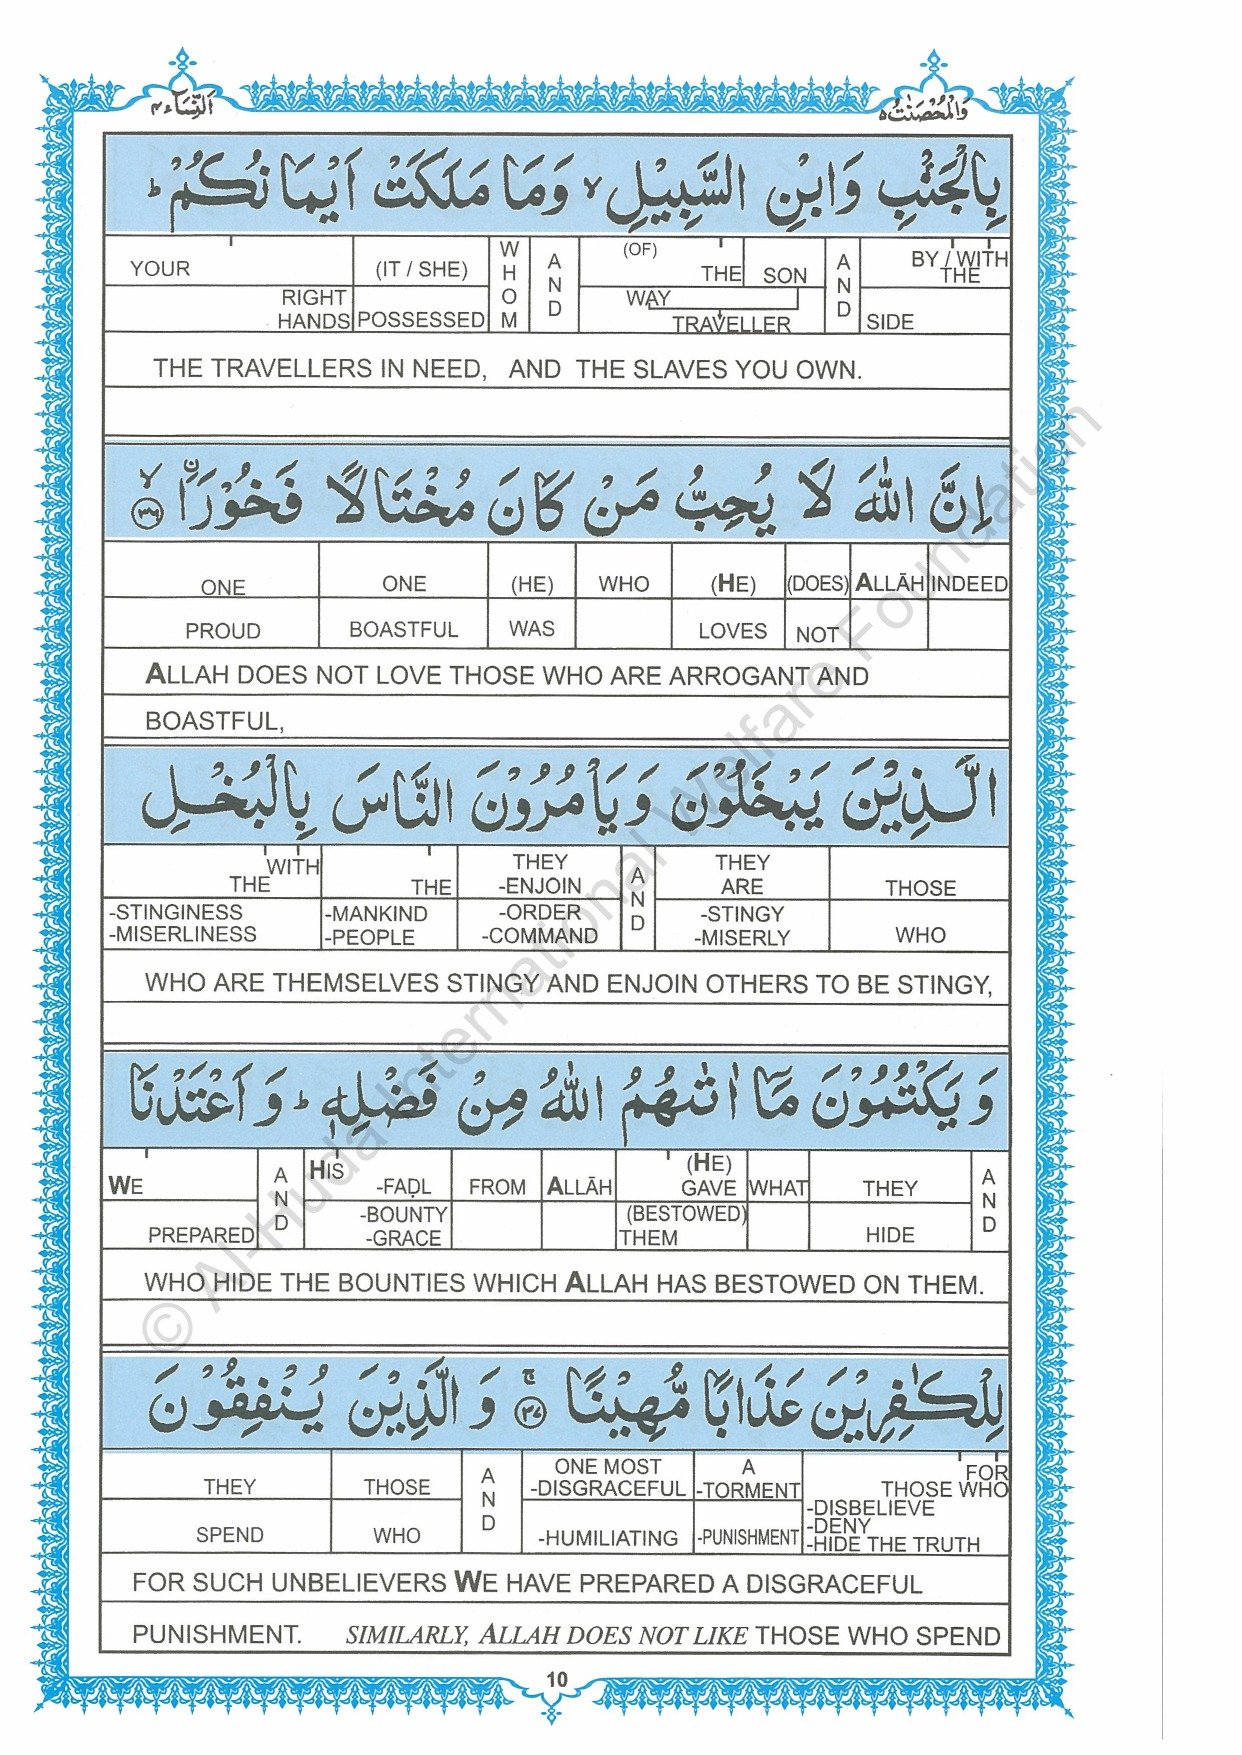 اَلنِّسَآء٤
وَالْمُحْصَنٰتُ٥
بِالْجَنْۢبِ وَابْنِ السَّبِيْلِ ۙ وَمَا مَلَكَتْ اَيْمَانُكُمْ ؕ
YOUR (IT / SHE) WHOM AND (OF) THE SON AND BY / WITH THE
RIGHT HANDS POSSESSED WAY TRAVELLER SIDE
THE TRAVELLERS IN NEED, AND THE SLAVES YOU OWN.
اِنَّ اللّٰهَ لَا يُحِبُّ مَنْ كَانَ مُخْتَالًا فَخُوْرَاۨ ۙ ﴿٣٦﴾
ONE ONE (HE) WHO (HE) (DOES) ALLĀH INDEED
PROUD BOASTFUL WAS LOVES NOT
ALLAH DOES NOT LOVE THOSE WHO ARE ARROGANT AND
BOASTFUL,
الَّذِيْنَ يَبْخَلُوْنَ وَيَاْمُرُوْنَ النَّاسَ بِالْبُخْلِ
WITH THE THE THEY -ENJOIN AND THEY ARE THOSE
-STINGINESS -MISERLINESS -MANKIND -PEOPLE -ORDER -COMMAND -STINGY -MISERLY WHO
WHO ARE THEMSELVES STINGY AND ENJOIN OTHERS TO BE STINGY,
وَيَكْتُمُوْنَ مَآ اٰتٰىهُمُ اللّٰهُ مِنْ فَضْلِهٖ ؕ وَاَعْتَدْنَا
WE AND HIS -FAḌL FROM ALLĀH (HE) GAVE WHAT THEY AND
PREPARED -BOUNTY -GRACE (BESTOWED) THEM HIDE
WHO HIDE THE BOUNTIES WHICH ALLAH HAS BESTOWED ON THEM.
لِلْكٰفِرِيْنَ عَذَابًا مُّهِيْنًا ۚ ﴿٣٧﴾ وَالَّذِيْنَ يُنْفِقُوْنَ
THEY THOSE AND ONE MOST -DISGRACEFUL A -TORMENT FOR THOSE WHO
SPEND WHO -HUMILIATING -PUNISHMENT -DISBELIEVE -DENY -HIDE THE TRUTH
FOR SUCH UNBELIEVERS WE HAVE PREPARED A DISGRACEFUL
PUNISHMENT. SIMILARLY, ALLAH DOES NOT LIKE THOSE WHO SPEND
10
© Al-Huda International Welfare Foundation